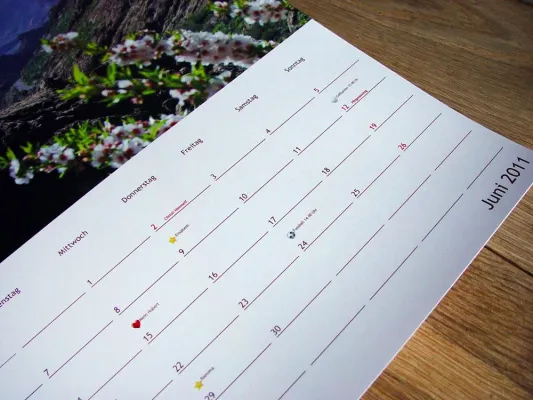 enstag
Mittwoch
Donnerstag
Freitag
Samstag
Sonntag
1
2
Christi Himmelf.
3
4
5
7
8
9
10
11
12
Pfingstsonntag
15
16
17
18
19
22
23
24
25
26
29
30
Juni 2011